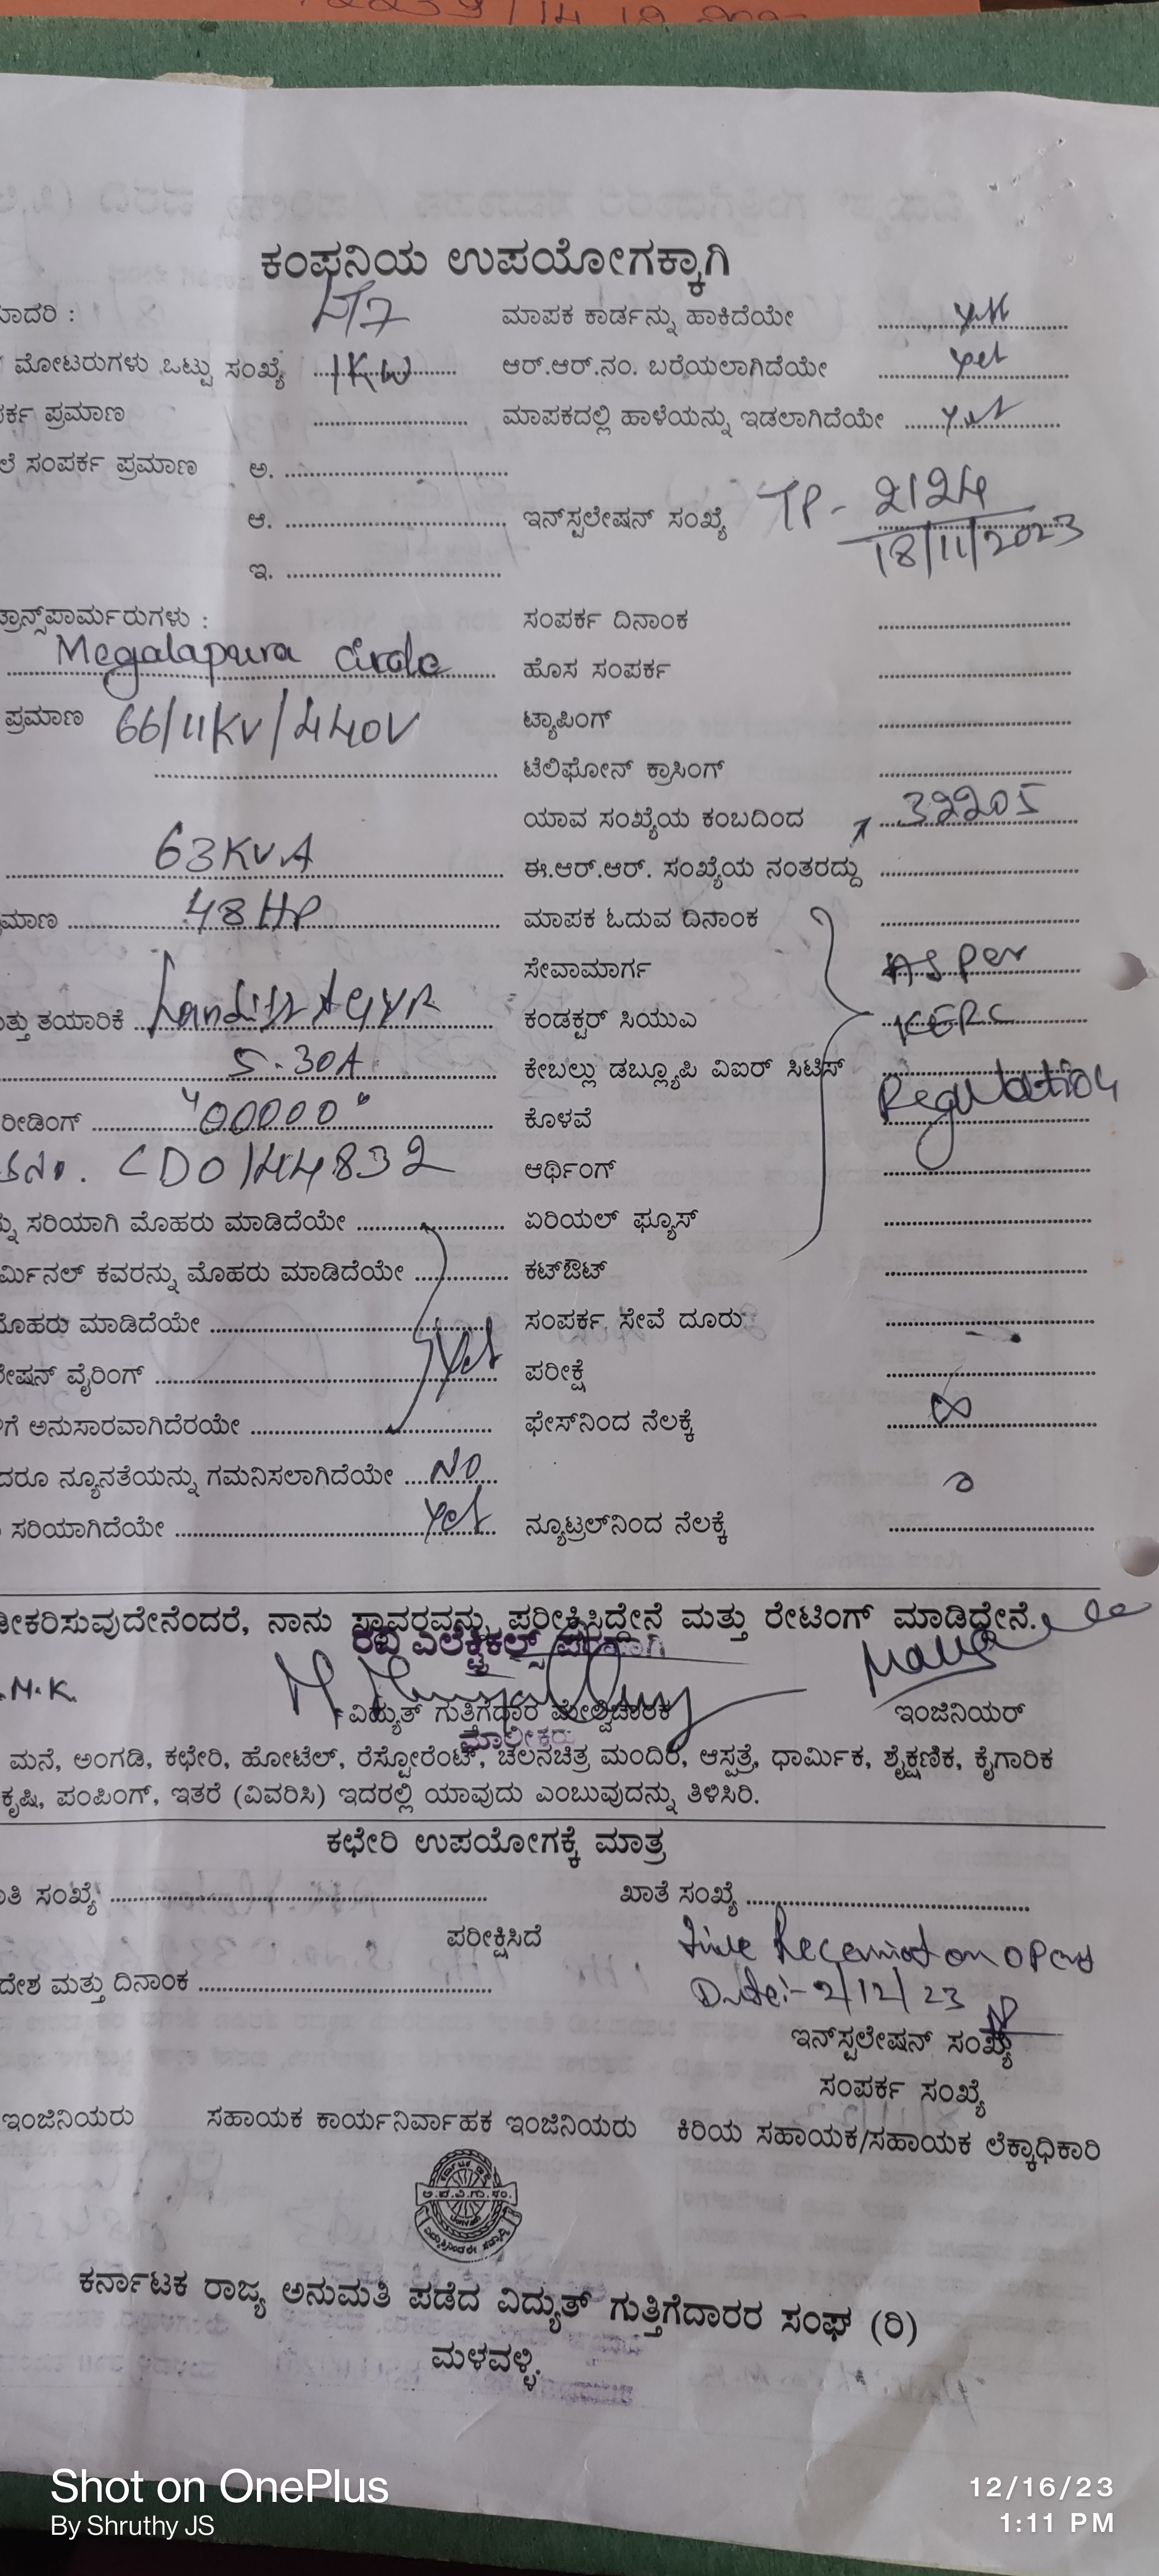 ಕಂಪನಿಯ ಉಪಯೋಗಕ್ಕಾಗಿ
ಮಾದರಿ : LT7 ಮಾಪಕ ಕಾರ್ಡನ್ನು ಹಾಕಿದೆಯೇ yes
ಮೋಟರುಗಳು ಒಟ್ಟು ಸಂಖ್ಯೆ 1KW ಆರ್.ಆರ್.ನಂ. ಬರೆಯಲಾಗಿದೆಯೇ yes
ಪ್ರಮಾಣ ಮಾಪಕದಲ್ಲಿ ಹಾಳೆಯನ್ನು ಇಡಲಾಗಿದೆಯೇ yes
ಸಂಪರ್ಕ ಪ್ರಮಾಣ ಅ.
ಆ. ಇನ್‌ಸ್ಟಲೇಷನ್ ಸಂಖ್ಯೆ TP- 2124
18/11/2023
ಇ.
ಟ್ರಾನ್ಸ್‌ಪಾರ್ಮರುಗಳು : ಸಂಪರ್ಕ ದಿನಾಂಕ
Megalapura circle ಹೊಸ ಸಂಪರ್ಕ
ಪ್ರಮಾಣ 66/11KV/440V ಟ್ಯಾಪಿಂಗ್
ಟೆಲಿಫೋನ್ ಕ್ರಾಸಿಂಗ್
ಯಾವ ಸಂಖ್ಯೆಯ ಕಂಬದಿಂದ 32205
63KVA ಈ.ಆರ್.ಆರ್. ಸಂಖ್ಯೆಯ ನಂತರದ್ದು
48HP ಮಾಪಕ ಓದುವ ದಿನಾಂಕ
ಸೇವಾಮಾರ್ಗ As per
ತಯಾರಿಕೆ Landis+GYR ಕಂಡಕ್ಟರ್ ಸಿಯುಎ KERC
5-30A ಕೇಬಲ್ಲು ಡಬ್ಲ್ಯೂಪಿ ವಿಐರ್ ಸಿಟಿಸ್ Regulation
ರೀಡಿಂಗ್ "00000" ಕೊಳವೆ
SNo. CD0144832 ಆರ್ಥಿಂಗ್
ಸರಿಯಾಗಿ ಮೊಹರು ಮಾಡಿದೆಯೇ ಏರಿಯಲ್ ಫ್ಯೂಸ್
ಕವರನ್ನು ಮೊಹರು ಮಾಡಿದೆಯೇ ಕಟ್‌ಔಟ್
ಮೊಹರು ಮಾಡಿದೆಯೇ ಸಂಪರ್ಕ ಸೇವೆ ದೂರು
ವೈರಿಂಗ್ yes ಪರೀಕ್ಷೆ
ಅನುಸಾರವಾಗಿದೆರಯೇ ಫೇಸ್‌ನಿಂದ ನೆಲಕ್ಕೆ
ನ್ಯೂನತೆಯನ್ನು ಗಮನಿಸಲಾಗಿದೆಯೇ No
ಸರಿಯಾಗಿದೆಯೇ yes ನ್ಯೂಟ್ರಲ್‌ನಿಂದ ನೆಲಕ್ಕೆ
ನಾನು ಸ್ಥಾವರವನ್ನು ಪರೀಕ್ಷಿಸಿದ್ದೇನೆ ಮತ್ತು ರೇಟಿಂಗ್ ಮಾಡಿದ್ದೇನೆ.
ಎಲೆಕ್ಟ್ರಿಕಲ್ಸ್ ಪರವಾಗಿ
M.K.
ವಿದ್ಯುತ್ ಗುತ್ತಿಗೆದಾರ ಮೇಲ್ವಿಚಾರಕ ಇಂಜಿನಿಯರ್
ಮಾಲೀಕರು
ಮನೆ, ಅಂಗಡಿ, ಕಛೇರಿ, ಹೋಟೆಲ್, ರೆಸ್ಟೋರೆಂಟ್, ಚಲನಚಿತ್ರ ಮಂದಿರ, ಆಸ್ಪತ್ರೆ, ಧಾರ್ಮಿಕ, ಶೈಕ್ಷಣಿಕ, ಕೈಗಾರಿಕ
ಕೃಷಿ, ಪಂಪಿಂಗ್, ಇತರೆ (ವಿವರಿಸಿ) ಇದರಲ್ಲಿ ಯಾವುದು ಎಂಬುವುದನ್ನು ತಿಳಿಸಿರಿ.
ಕಛೇರಿ ಉಪಯೋಗಕ್ಕೆ ಮಾತ್ರ
ಸಂಖ್ಯೆ ಖಾತೆ ಸಂಖ್ಯೆ
ಪರೀಕ್ಷಿಸಿದೆ
ಮತ್ತು ದಿನಾಂಕ Date:- 2/12/23
ಇನ್‌ಸ್ಟಲೇಷನ್ ಸಂಖ್ಯೆ
ಸಂಪರ್ಕ ಸಂಖ್ಯೆ
ಇಂಜಿನಿಯರು ಸಹಾಯಕ ಕಾರ್ಯನಿರ್ವಾಹಕ ಇಂಜಿನಿಯರು ಕಿರಿಯ ಸಹಾಯಕ/ಸಹಾಯಕ ಲೆಕ್ಕಾಧಿಕಾರಿ
ಕರ್ನಾಟಕ ರಾಜ್ಯ ಅನುಮತಿ ಪಡೆದ ವಿದ್ಯುತ್ ಗುತ್ತಿಗೆದಾರರ ಸಂಘ (ರಿ)
ಮಳವಳ್ಳಿ.
Shot on OnePlus 12/16/23
By Shruthy JS 1:11 PM